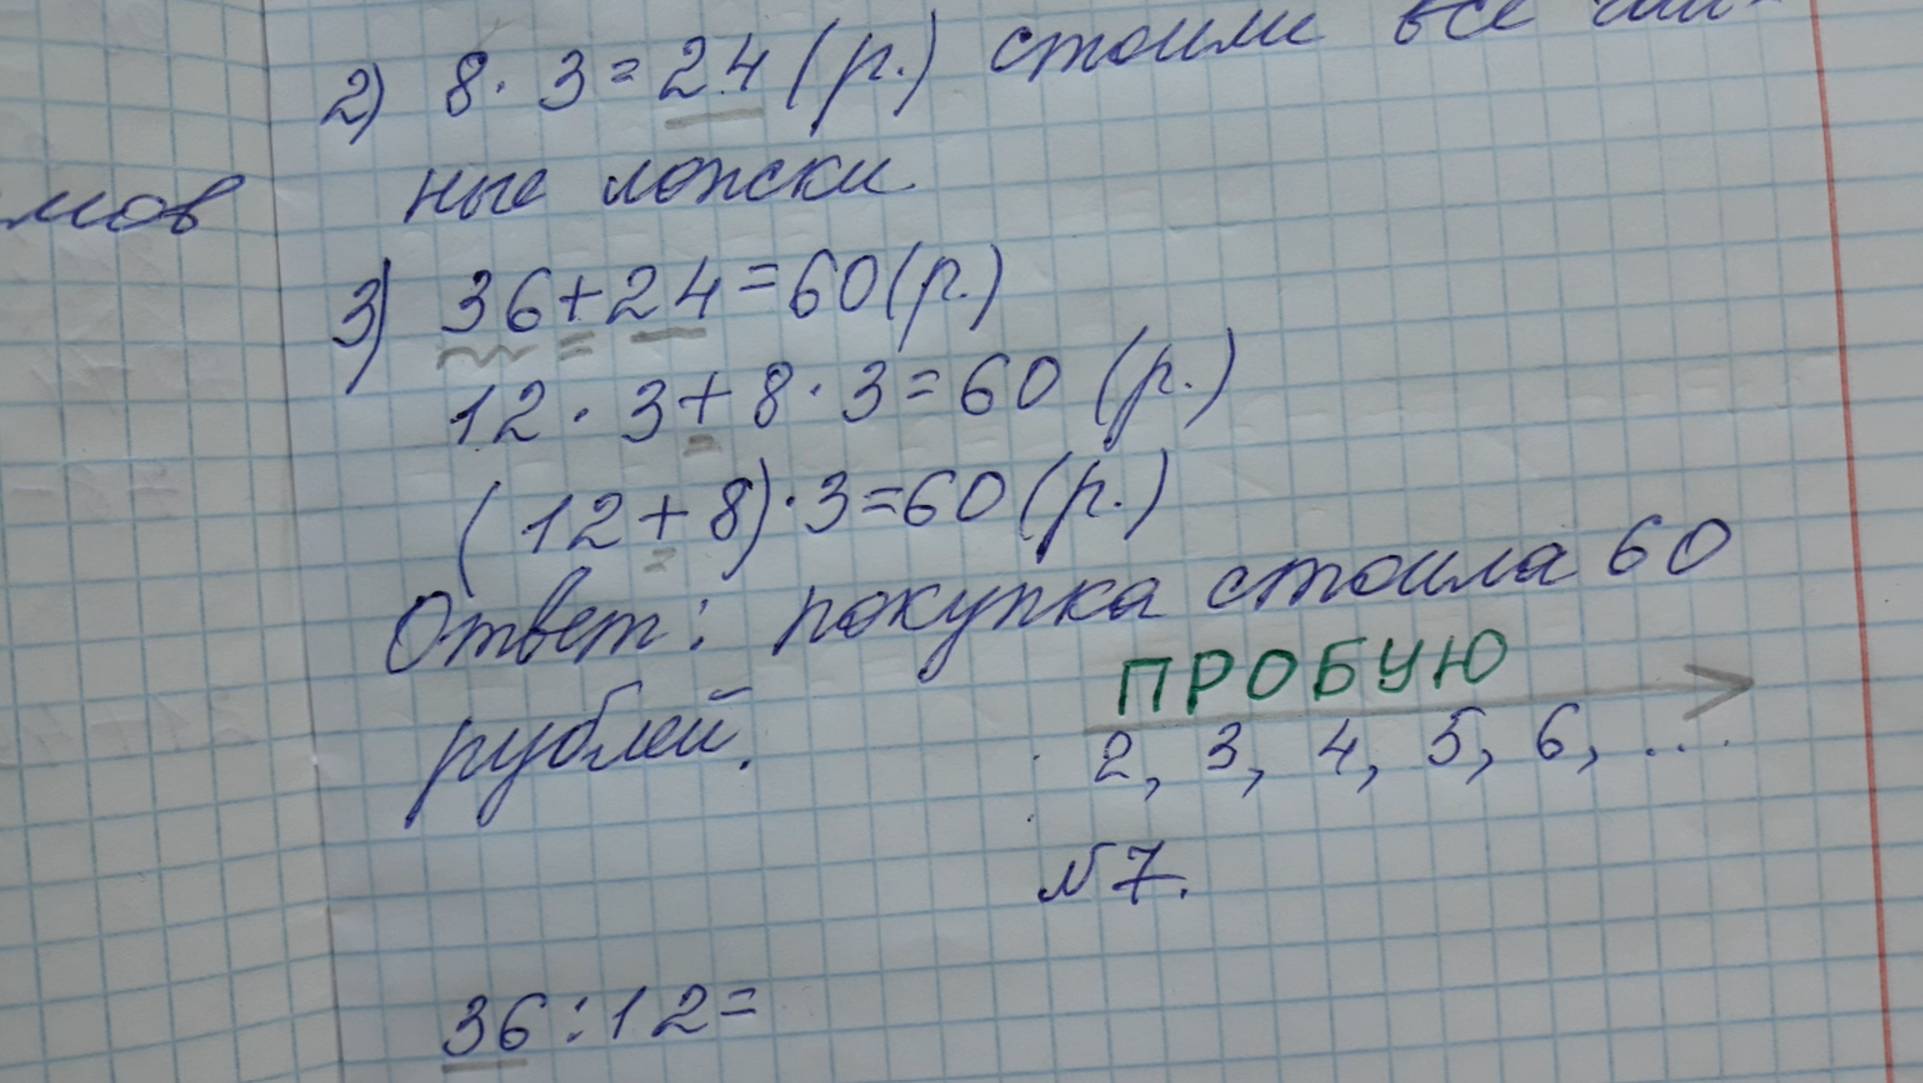 мов
2) 8 · 3 = 24 (р.) стоили все чай-
ные ложки
3) 36 + 24 = 60 (р.)
12 · 3 + 8 · 3 = 60 (р.)
(12 + 8) · 3 = 60 (р.)
Ответ: покупка стоила 60
рублей.
ПРОБУЮ
2, 3, 4, 5, 6, ...
№ 7.
36 : 12 =